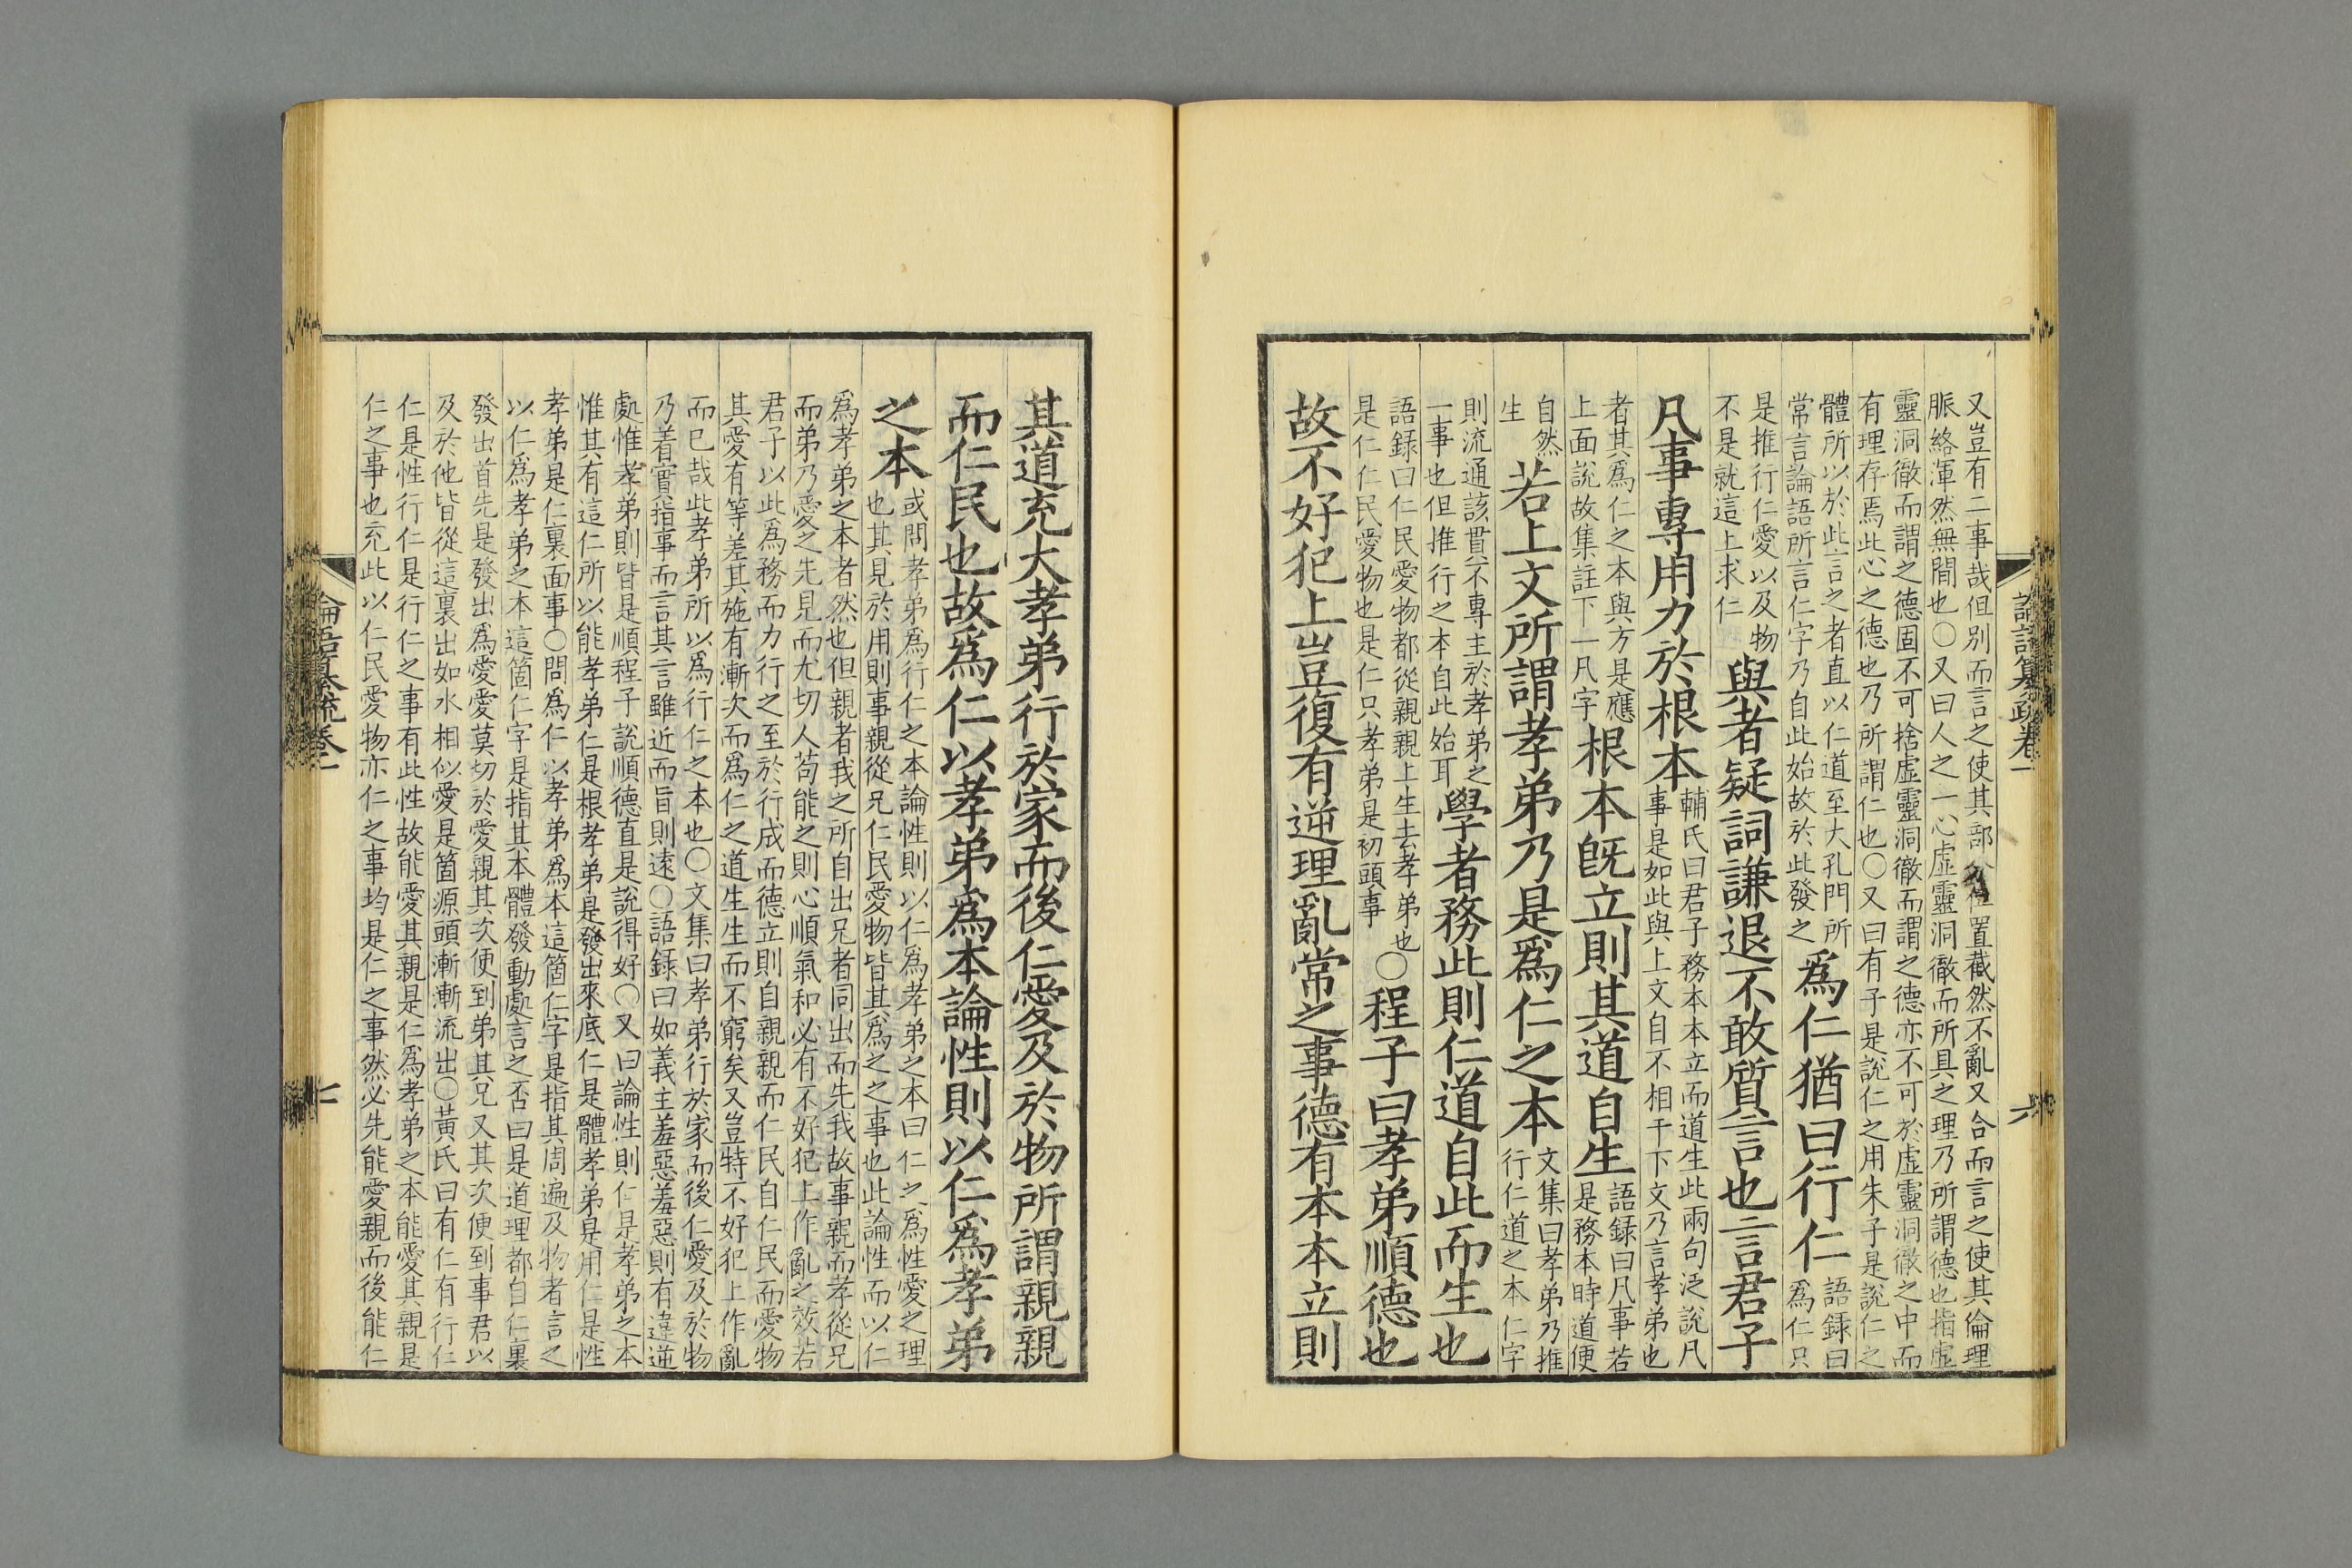 又豈有二事哉但別而言之使其部位置截然不亂又合而言之使其倫理
脈絡渾然無間也○又曰人之一心虛靈洞徹而所具之理乃所謂德也指虛
靈洞徹而謂之德固不可捨虛靈洞徹而謂之德亦不可於虛靈洞徹之中而
有理存焉此心之德也乃所謂仁也○又曰有子是說仁之用朱子是說仁之
體所以於此言之者直以仁道至大孔門所
常言論語所言仁字乃自此始故於此發之
爲仁猶曰行仁
語録曰
爲仁只
是推行仁愛以及物
不是就這上求仁
與者疑詞謙退不敢質言也言君子
凡事專用力於根本
輔氏曰君子務本本立而道生此兩句泛說凡
事是如此與上文自不相干下文乃言孝弟也
者其爲仁之本與方是應
上面說故集註下一凡字
根本旣立則其道自生
語録曰凡事若
是務本時道便
自然
生
若上文所謂孝弟乃是爲仁之本
文集曰孝弟乃推
行仁道之本仁字
則流通該貫不專主於孝弟之
一事也但推行之本自此始耳
學者務此則仁道自此而生也
語録曰仁民愛物都從親親上生去孝弟也
是仁仁民愛物也是仁只孝弟是初頭事
○程子曰孝弟順德也
故不好犯上豈復有逆理亂常之事德有本本立則
論語纂疏卷一
六
其道充大孝弟行於家而後仁愛及於物所謂親親
而仁民也故爲仁以孝弟爲本論性則以仁爲孝弟
之本
或問孝弟爲行仁之本論性則以仁爲孝弟之本曰仁之爲性愛之理
也其見於用則事親從兄仁民愛物皆其爲之之事也此論性而以仁
爲孝弟之本者然也但親者我之所自出兄者同出而先我故事親而孝從兄
而弟乃愛之先見而尤切人苟能之則心順氣和必有不好犯上作亂之效若
君子以此爲務而力行之至於行成而德立則自親親而仁民自仁民而愛物
其愛有等差其施有漸次而爲仁之道生生而不窮矣又豈特不好犯上作亂
而已哉此孝弟所以爲行仁之本也○文集曰孝弟行於家而後仁愛及於物
乃着實指事而言其言雖近而旨則遠○語録曰如義主羞惡羞惡則有違逆
處惟孝弟則皆是順程子說順德直是說得好○又曰論性則仁是孝弟之本
惟其有這仁所以能孝弟仁是根孝弟是發出來底仁是體孝弟是用仁是性
孝弟是仁裏面事○問爲仁以孝弟爲本這箇仁字是指其周遍及物者言之
以仁爲孝弟之本這箇仁字是指其本體發動處言之否曰是道理都自仁裏
發出首先是發出爲愛愛莫切於愛親其次便到弟其兄又其次便到事君以
及於他皆從這裏出如水相似愛是箇源頭漸漸流出○黃氏曰有仁有行仁
仁是性行仁是行仁之事有此性故能愛其親是仁爲孝弟之本能愛其親是
仁之事也充此以仁民愛物亦仁之事均是仁之事然必先能愛親而後能仁
論語纂疏卷一
七